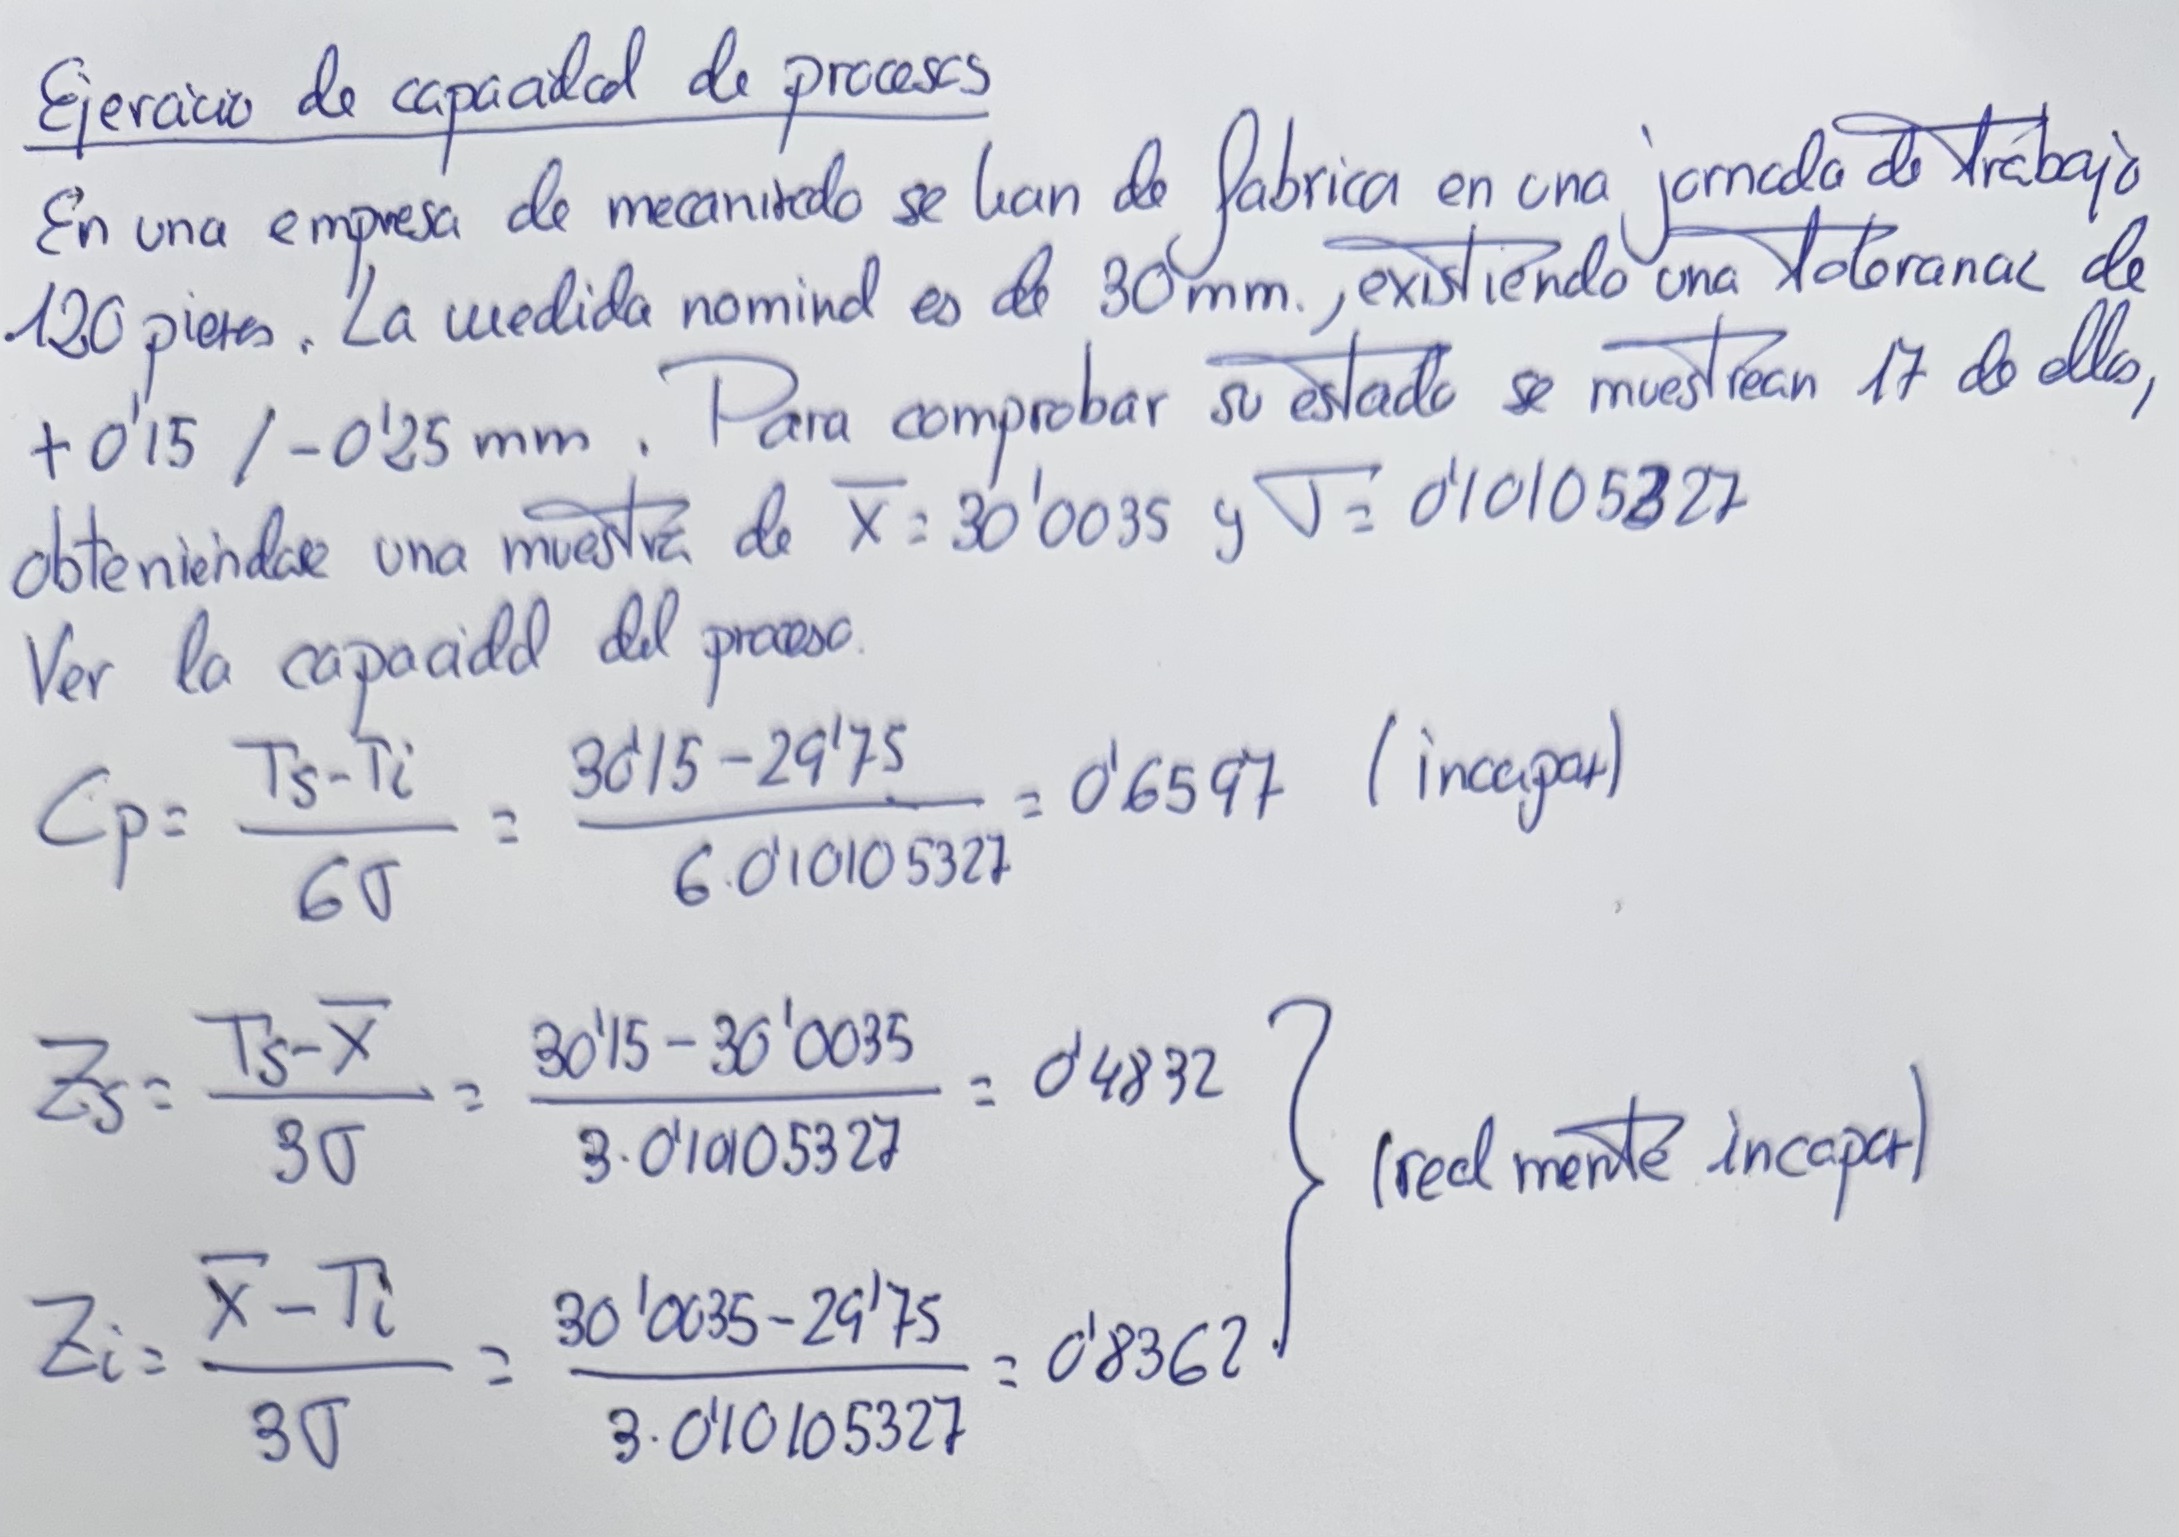 Ejercicio de capacidad de procesos
En una empresa de mecanizado se han de fabrica en una jornada de trabajo
120 piezas. La medida nominal es de 30 mm., existiendo una tolerancia de
+0'15 / -0'25 mm. Para comprobar su estado se muestrean 17 de ellas,
obteniendose una muestra de X̄ = 30'0035 y σ = 0'10105327
Ver la capacidad del proceso.
Cp = (Ts - Ti) / 6σ = (30'15 - 29'75) / (6·0'10105327) = 0'6597 (incapaz)
Zs = (Ts - X̄) / 3σ = (30'15 - 30'0035) / (3·0'10105327) = 0'4832
(realmente incapaz)
Zi = (X̄ - Ti) / 3σ = (30'0035 - 29'75) / (3·0'10105327) = 0'8362